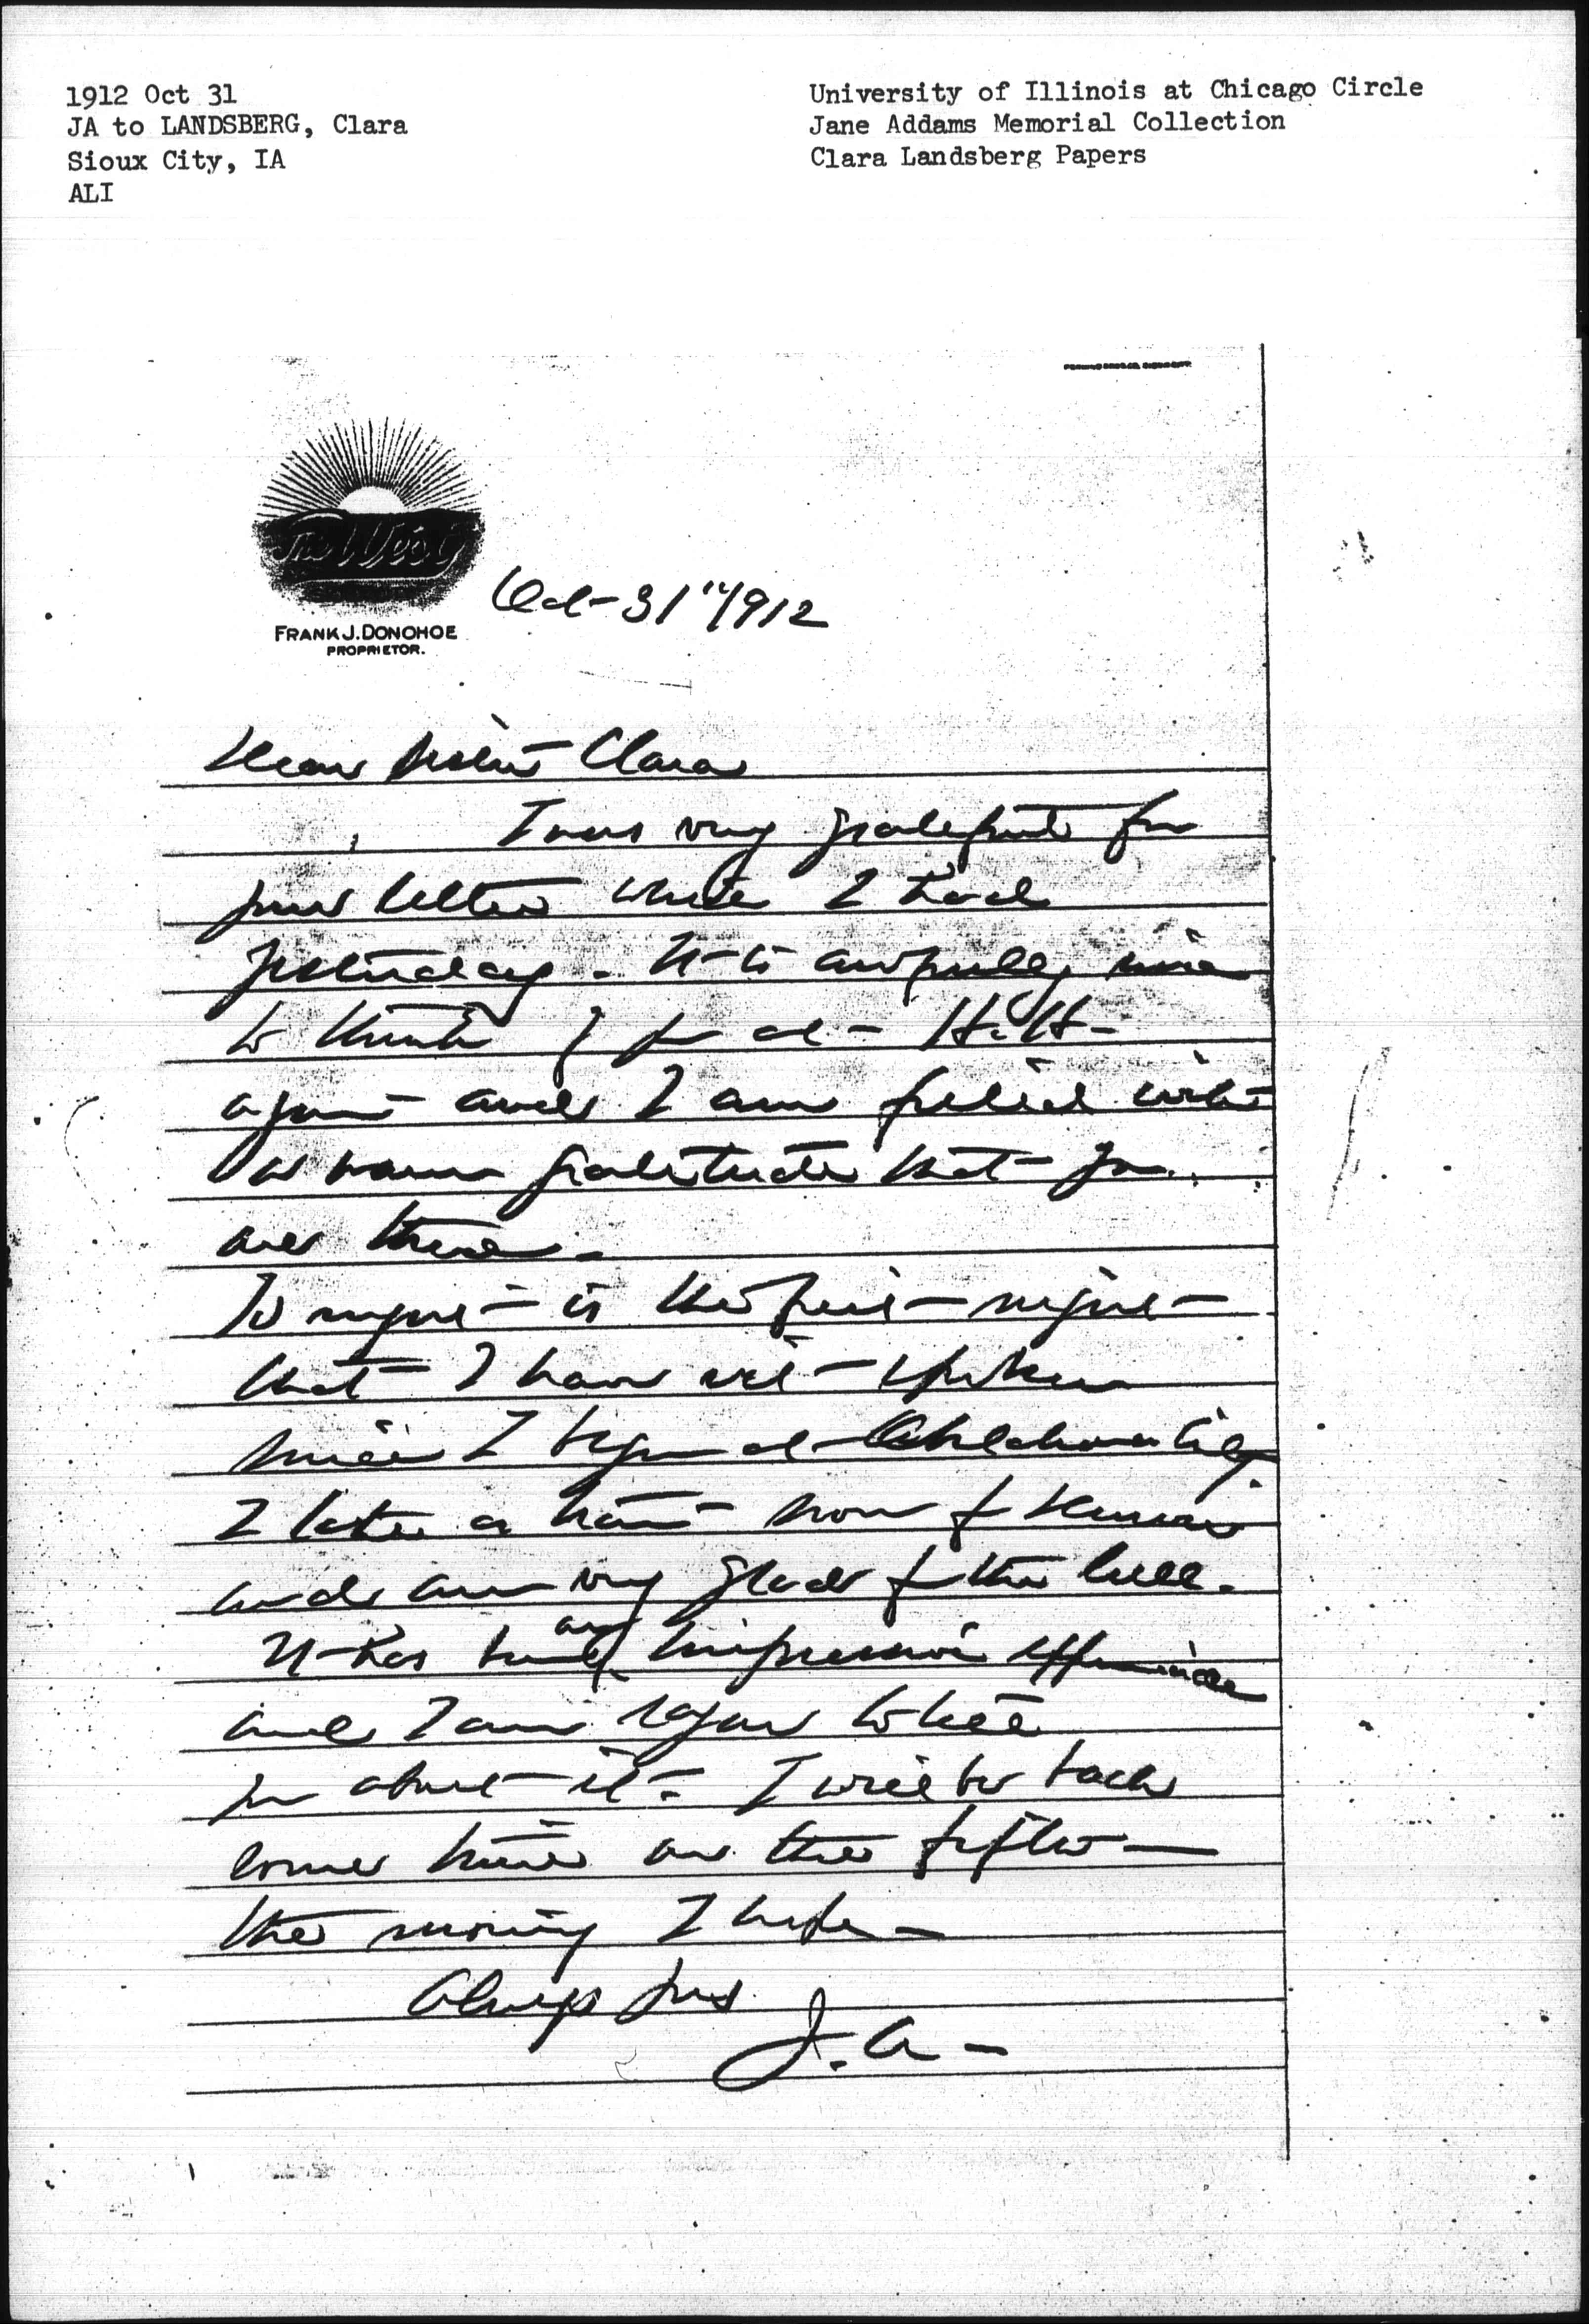 1912 Oct 31
JA to LANDSBERG, Clara
Sioux City, IA
ALI
University of Illinois at Chicago Circle
Jane Addams Memorial Collection
Clara Landsberg Papers
The West
FRANK J. DONOHOE
PROPRIETOR.
Oct 31" 1912
Dear Sister Clara
I was very grateful for
your letter which I had
yesterday. It is awfully nice
to think of you at H. H.
again and I am filled with
warm gratitude that you
are there.
To night is the first night
that I have not spoken
since I began at Oklahoma City
I take a train now for
and am very glad for the lull.
It has been an impressive experience
and I am eager to tell
you about it. I will be back
some time on the fifth
the morning I hope
Always yrs
J. A.